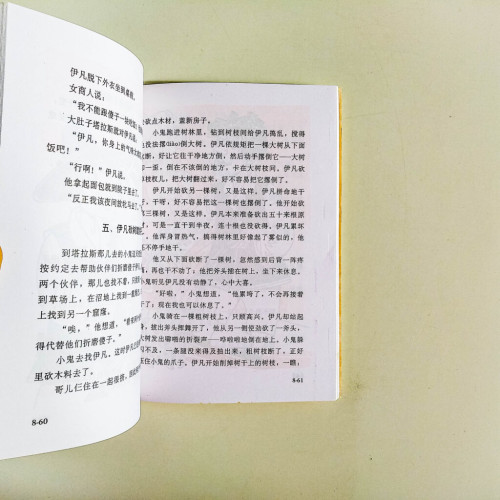 伊凡脱下外衣坐到桌
女商人说：
“我不能跟傻子一块
大肚子塔拉斯就对伊凡
“伊凡，你身上的气味
饭吧！”
“行啊！”伊凡说。
他拿起面包就到院子里去
“反正我该夜间放牲马去了
五、伊凡砍树
到塔拉斯那儿去的小鬼
按约定去帮助伙伴们折磨
两个伙伴，那儿也找不着，只
到草场上，在沼地上找到一
上找到另一个窟窿。
“唉，”他想道，“
得代替他们折磨傻子。”
小鬼去找伊凡。这时伊凡
里砍木料去了。
哥儿仨住在一起很挤，
8-60
砍点木材，盖新房子。
小鬼跑进树林里，钻到树枝间给伊凡捣乱，搅得
没法撂(liào)倒大树。伊凡依规矩把一棵大树从下面
砍断，好让它往干净地方倒，然后动手撂倒它——大树
却一歪，倒在不该倒的地方，卡在大树枝间。伊凡砍
枝杈儿，把大树翻过来，好不容易把它撂倒了。
伊凡开始砍另一棵树，又是这样。伊凡拼命地干
干呀，好不容易把这一棵树也撂倒了。他开始砍
三棵树，又是这样。伊凡本来准备砍出五十来根原
可是一直干到半夜，连十根也没砍得。伊凡累坏
他浑身冒热气，搞得树林里好像起了雾似的，他
不停手地干。
他又从下面砍断了一棵树，忽然感到后背一阵疼
再也干不动了；他把斧头插在树上，坐下来休息。
小鬼听见伊凡没有了动静，心中大喜。
“好啦，”小鬼想道，“他累垮了，不会再接着
了，现在我也可以休息了。”
小鬼骑在一棵粗树枝上，只顾高兴。伊凡却站起
拔出斧头抡舞开了，他从另一侧使劲砍了一斧头，
大树发出噼啪的折裂声一哗啦啦地倒在地上。小鬼躲
闪不及，一条腿没来得及抽出来，粗树枝断了，正好
压住小鬼的爪子。伊凡开始削掉树干上的树枝，一
8-61